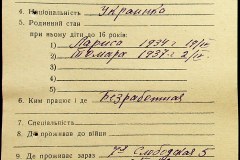 4. Національність Украинка
5. Родинний стан
при ньому діти до 16 років:
1. Лариса 1934 г 19/IV
2. Тамара 1937 г 2/IV
3.
4.
5.
6. Ким працює і де Безработная
7. Спеціяльність
8. Де проживав до війни
9. Де проживає зараз Слободская 5